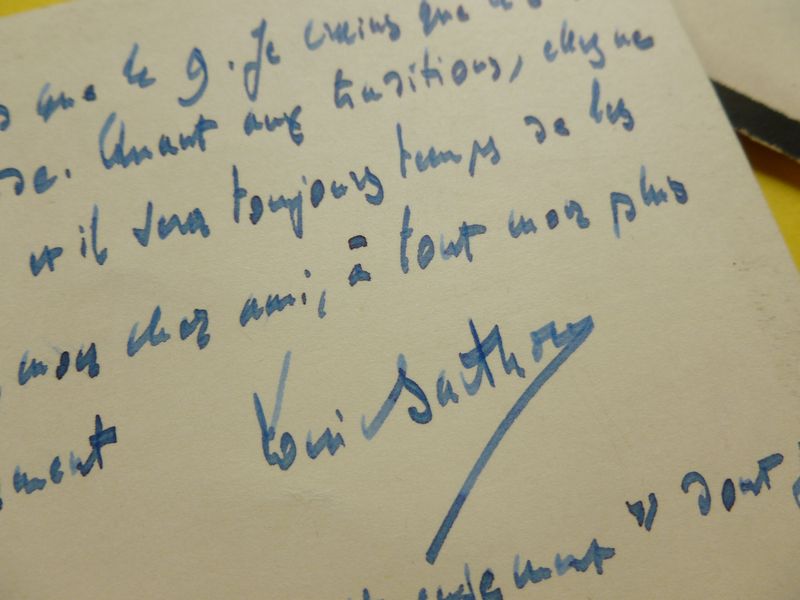 que le 9. Je crains que
de. Quant aux traditions, elles ne
et il sera toujours temps de les
, mon cher ami, à tout mon plus
ment
Louis Barthou
ment" dont